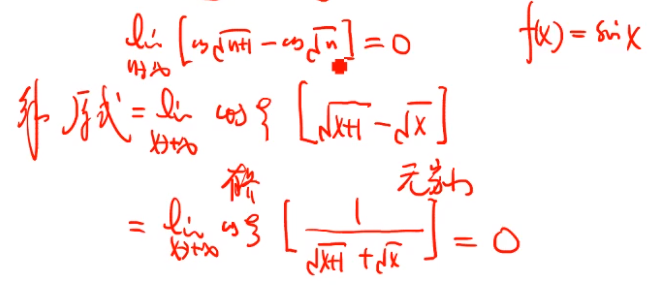 lim n→∞ [cos√(n+1) - cos√n] = 0 f(x) = sin x
解 原式 = lim x→+∞ cos ξ [√(x+1) - √x]
有界 无穷小
= lim x→+∞ cos ξ [1/(√(x+1) + √x)] = 0